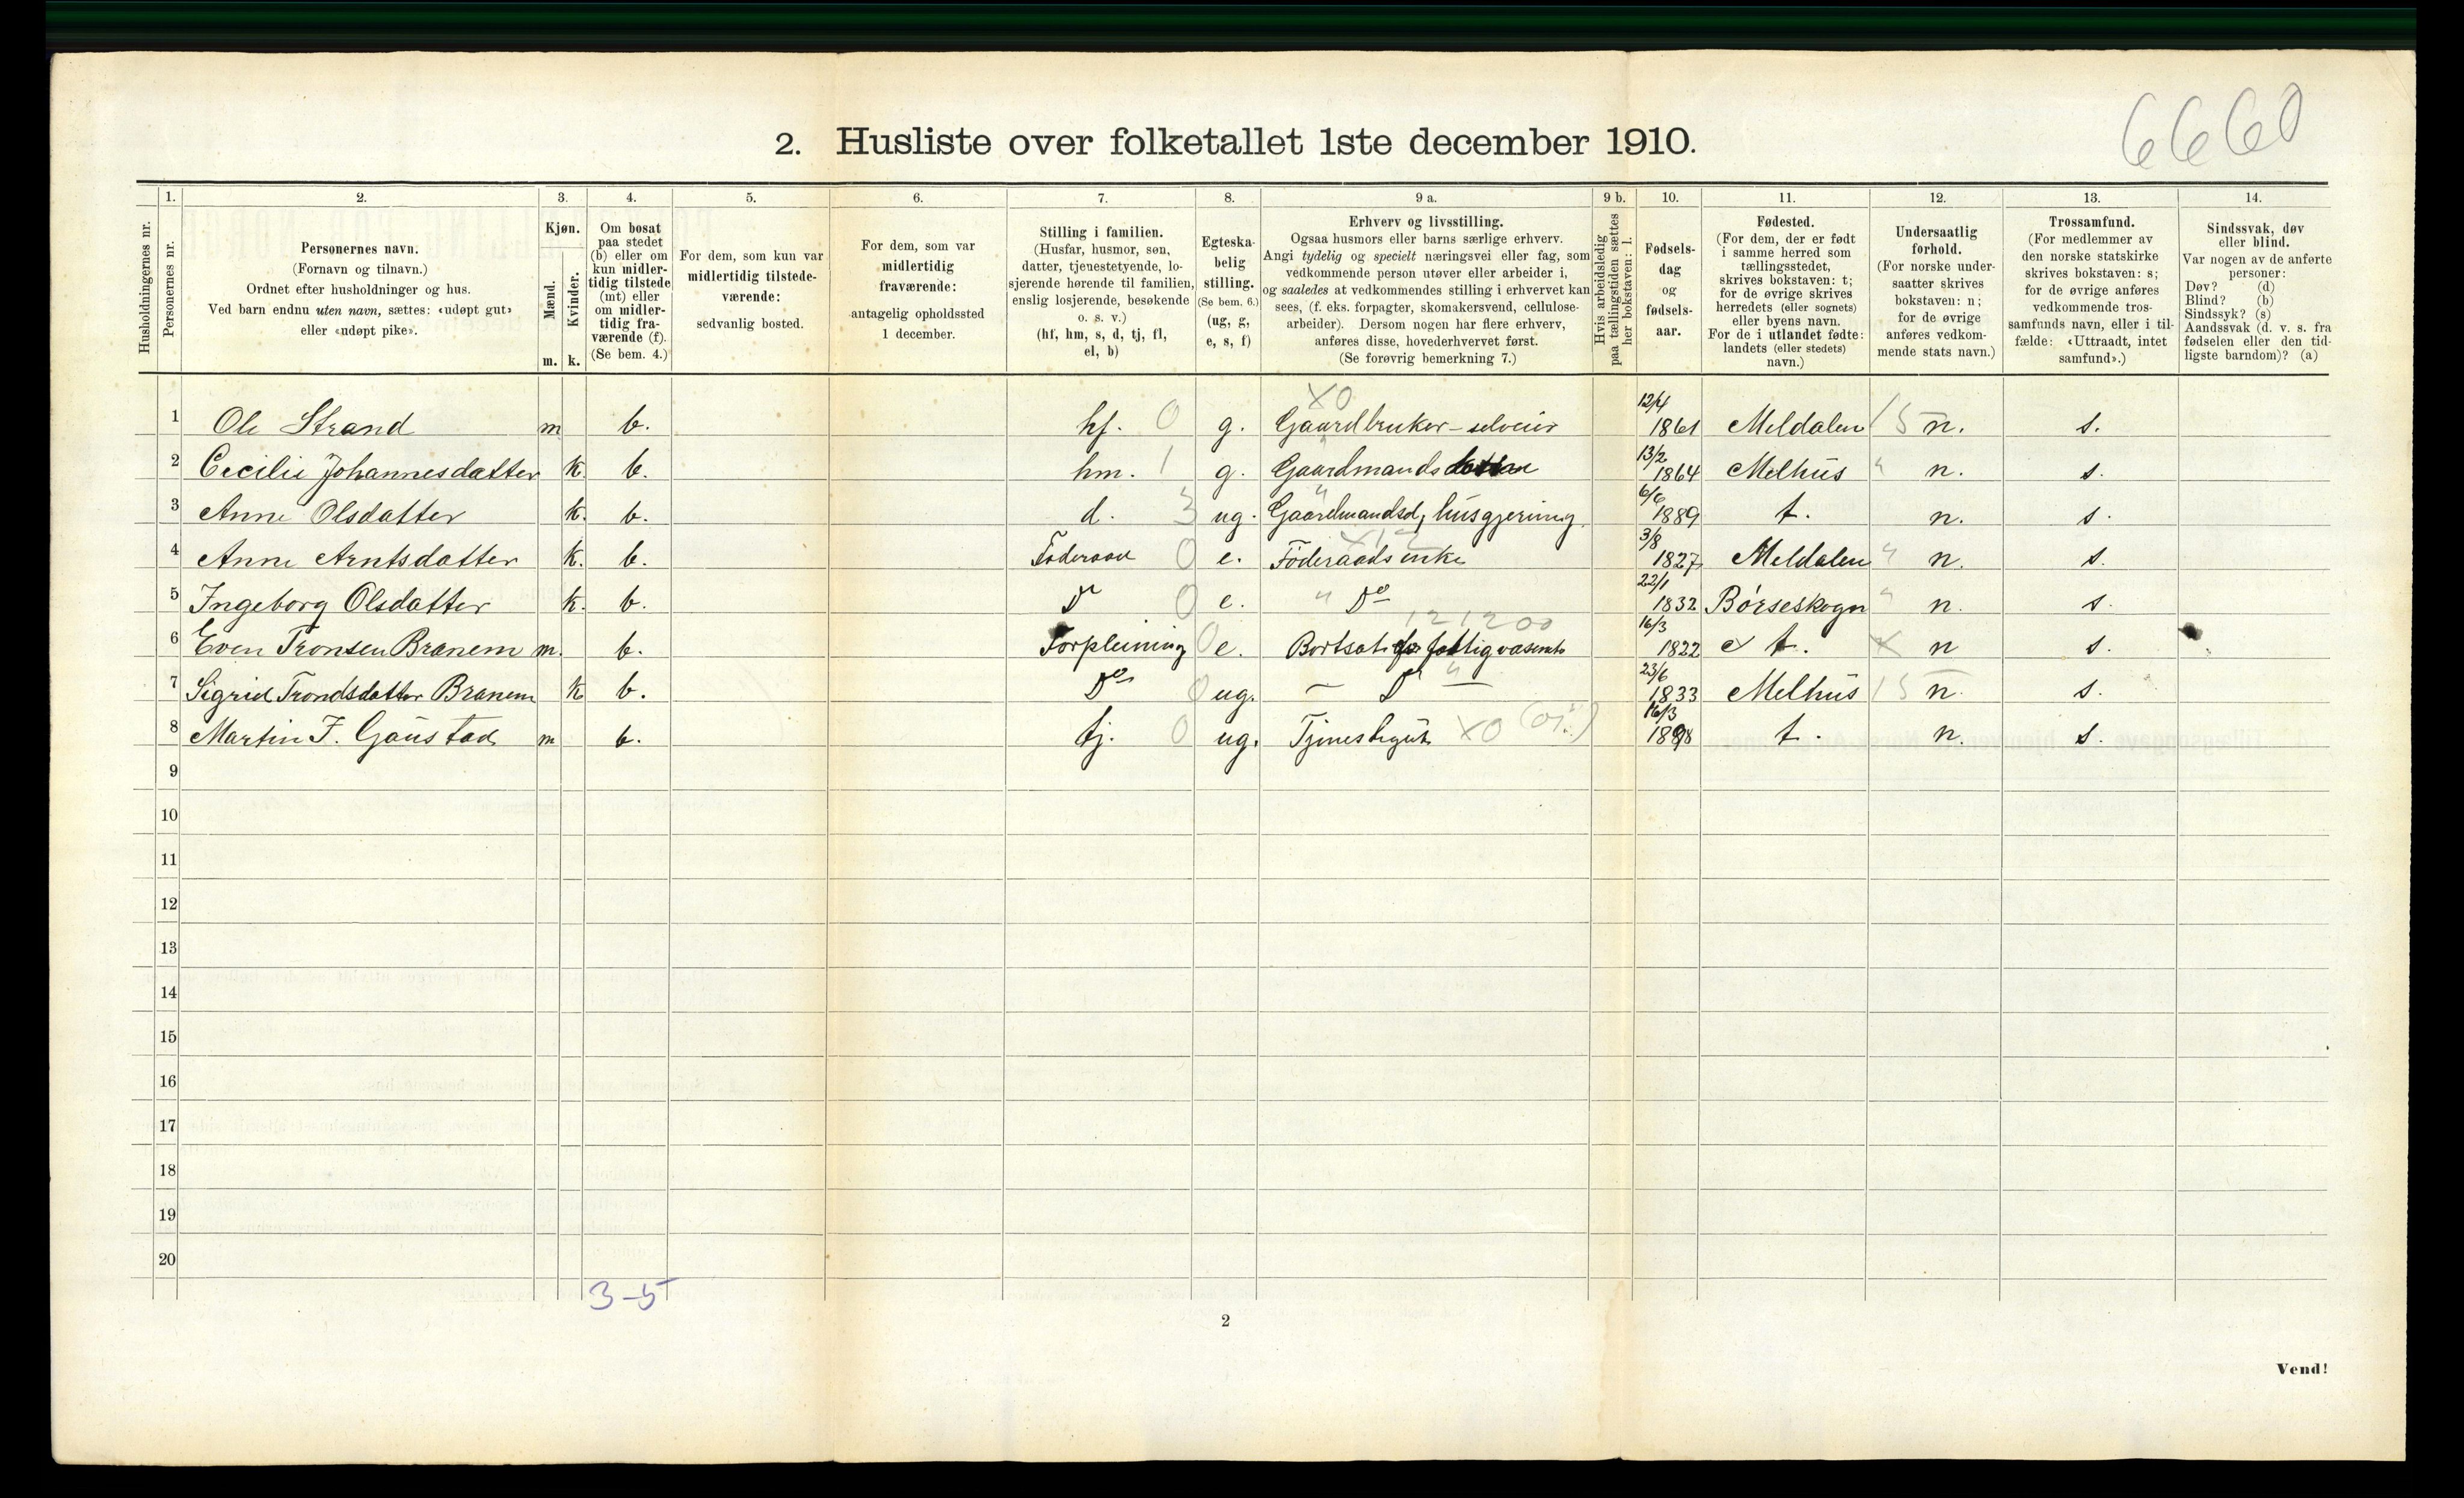 6660
2. Husliste over folketallet 1ste december 1910.
1. 2. 3. 4. 5. 6. 7. 8. 9 a. 9 b. 10. 11. 12. 13. 14.
Husholdningernes nr.
Personernes nr.
Personernes navn.
(Fornavn og tilnavn.)
Ordnet efter husholdninger og hus.
Ved barn endnu uten navn, sættes: «udøpt gut»
eller «udøpt pike».
Kjøn.
Mænd.
Kvinder.
m. k.
Om bosat
paa stedet
(b) eller om
kun midler-
tidig tilstede
(mt) eller
om midler-
tidig fra-
værende (f).
(Se bem. 4.)
For dem, som kun var
midlertidig tilstede-
værende:
sedvanlig bosted.
For dem, som var
midlertidig
fraværende:
antagelig opholdssted
1 december.
Stilling i familien.
(Husfar, husmor, søn,
datter, tjenestetyende, lo-
sjerende hørende til familien,
enslig losjerende, besøkende
o. s. v.)
(hf, hm, s, d, tj, fl,
el, b)
Egteska-
belig
stilling.
(Se bem. 6.)
(ug, g,
e, s, f)
Erhverv og livsstilling.
Ogsaa husmors eller barns særlige erhverv.
Angi tydelig og specielt næringsvei eller fag, som
vedkommende person utøver eller arbeider i,
og saaledes at vedkommendes stilling i erhvervet kan
sees, (f. eks. forpagter, skomakersvend, cellulose-
arbeider). Dersom nogen har flere erhverv,
anføres disse, hovederhvervet først.
(Se forøvrig bemerkning 7.)
Hvis arbeidsledig
paa tællingstiden sættes
her bokstaven: l.
Fødsels-
dag
og
fødsels-
aar.
Fødested.
(For dem, der er født
i samme herred som
tællingsstedet,
skrives bokstaven: t;
for de øvrige skrives
herredets (eller sognets)
eller byens navn.
For de i utlandet fødte:
landets (eller stedets)
navn.)
Undersaatlig
forhold.
(For norske under-
saatter skrives
bokstaven: n;
for de øvrige
anføres vedkom-
mende stats navn.)
Trossamfund.
(For medlemmer av
den norske statskirke
skrives bokstaven: s;
for de øvrige anføres
vedkommende tros-
samfunds navn, eller i til-
fælde: «Uttraadt, intet
samfund».)
Sindssvak, døv
eller blind.
Var nogen av de anførte
personer:
Døv? (d)
Blind? (b)
Sindssyk? (s)
Aandssvak (d. v. s. fra
fødselen eller den tid-
ligste barndom)? (a)
X0
1 Ole Strand m b. hf. 0 g. Gaardbruker - selveier 12/4 1861 Meldalen 15 n. s.
2 Cecilie Johannesdatter k. b. hm. 1 g. Gaardmands 13/2 1864 Melhus " n. s.
3 Anne Olsdatter k. b. d. 3 ug. " Gaardmandsd, husgjerning 6/6 1889 t. n. s.
4 Anne Arntsdatter k. b. Föderaad 0 e. Föderaadsenke 3/8 1827 Meldalen " n. s.
5 Ingeborg Olsdatter k. b. Do 0 e. " Do 22/1 1832 Børseskogn " n. s.
121200
6 Even Tronsen Branem m. b. Forpleining 0 e. Bortsat fattigvæsenet 16/3 1822 t. X n s.
7 Sigrid Trondsdatter Branem k b. Do 0 ug. — Do " — 23/6 1833 Melhus 15 n. s.
8 Martin J. Gaustad m b. tj. 0 ug. Tjenestegut X0 16/3 1898 t. n. s.
9
10
11
12
13
14
15
16
17
18
19
20
3-5
2
Vend!